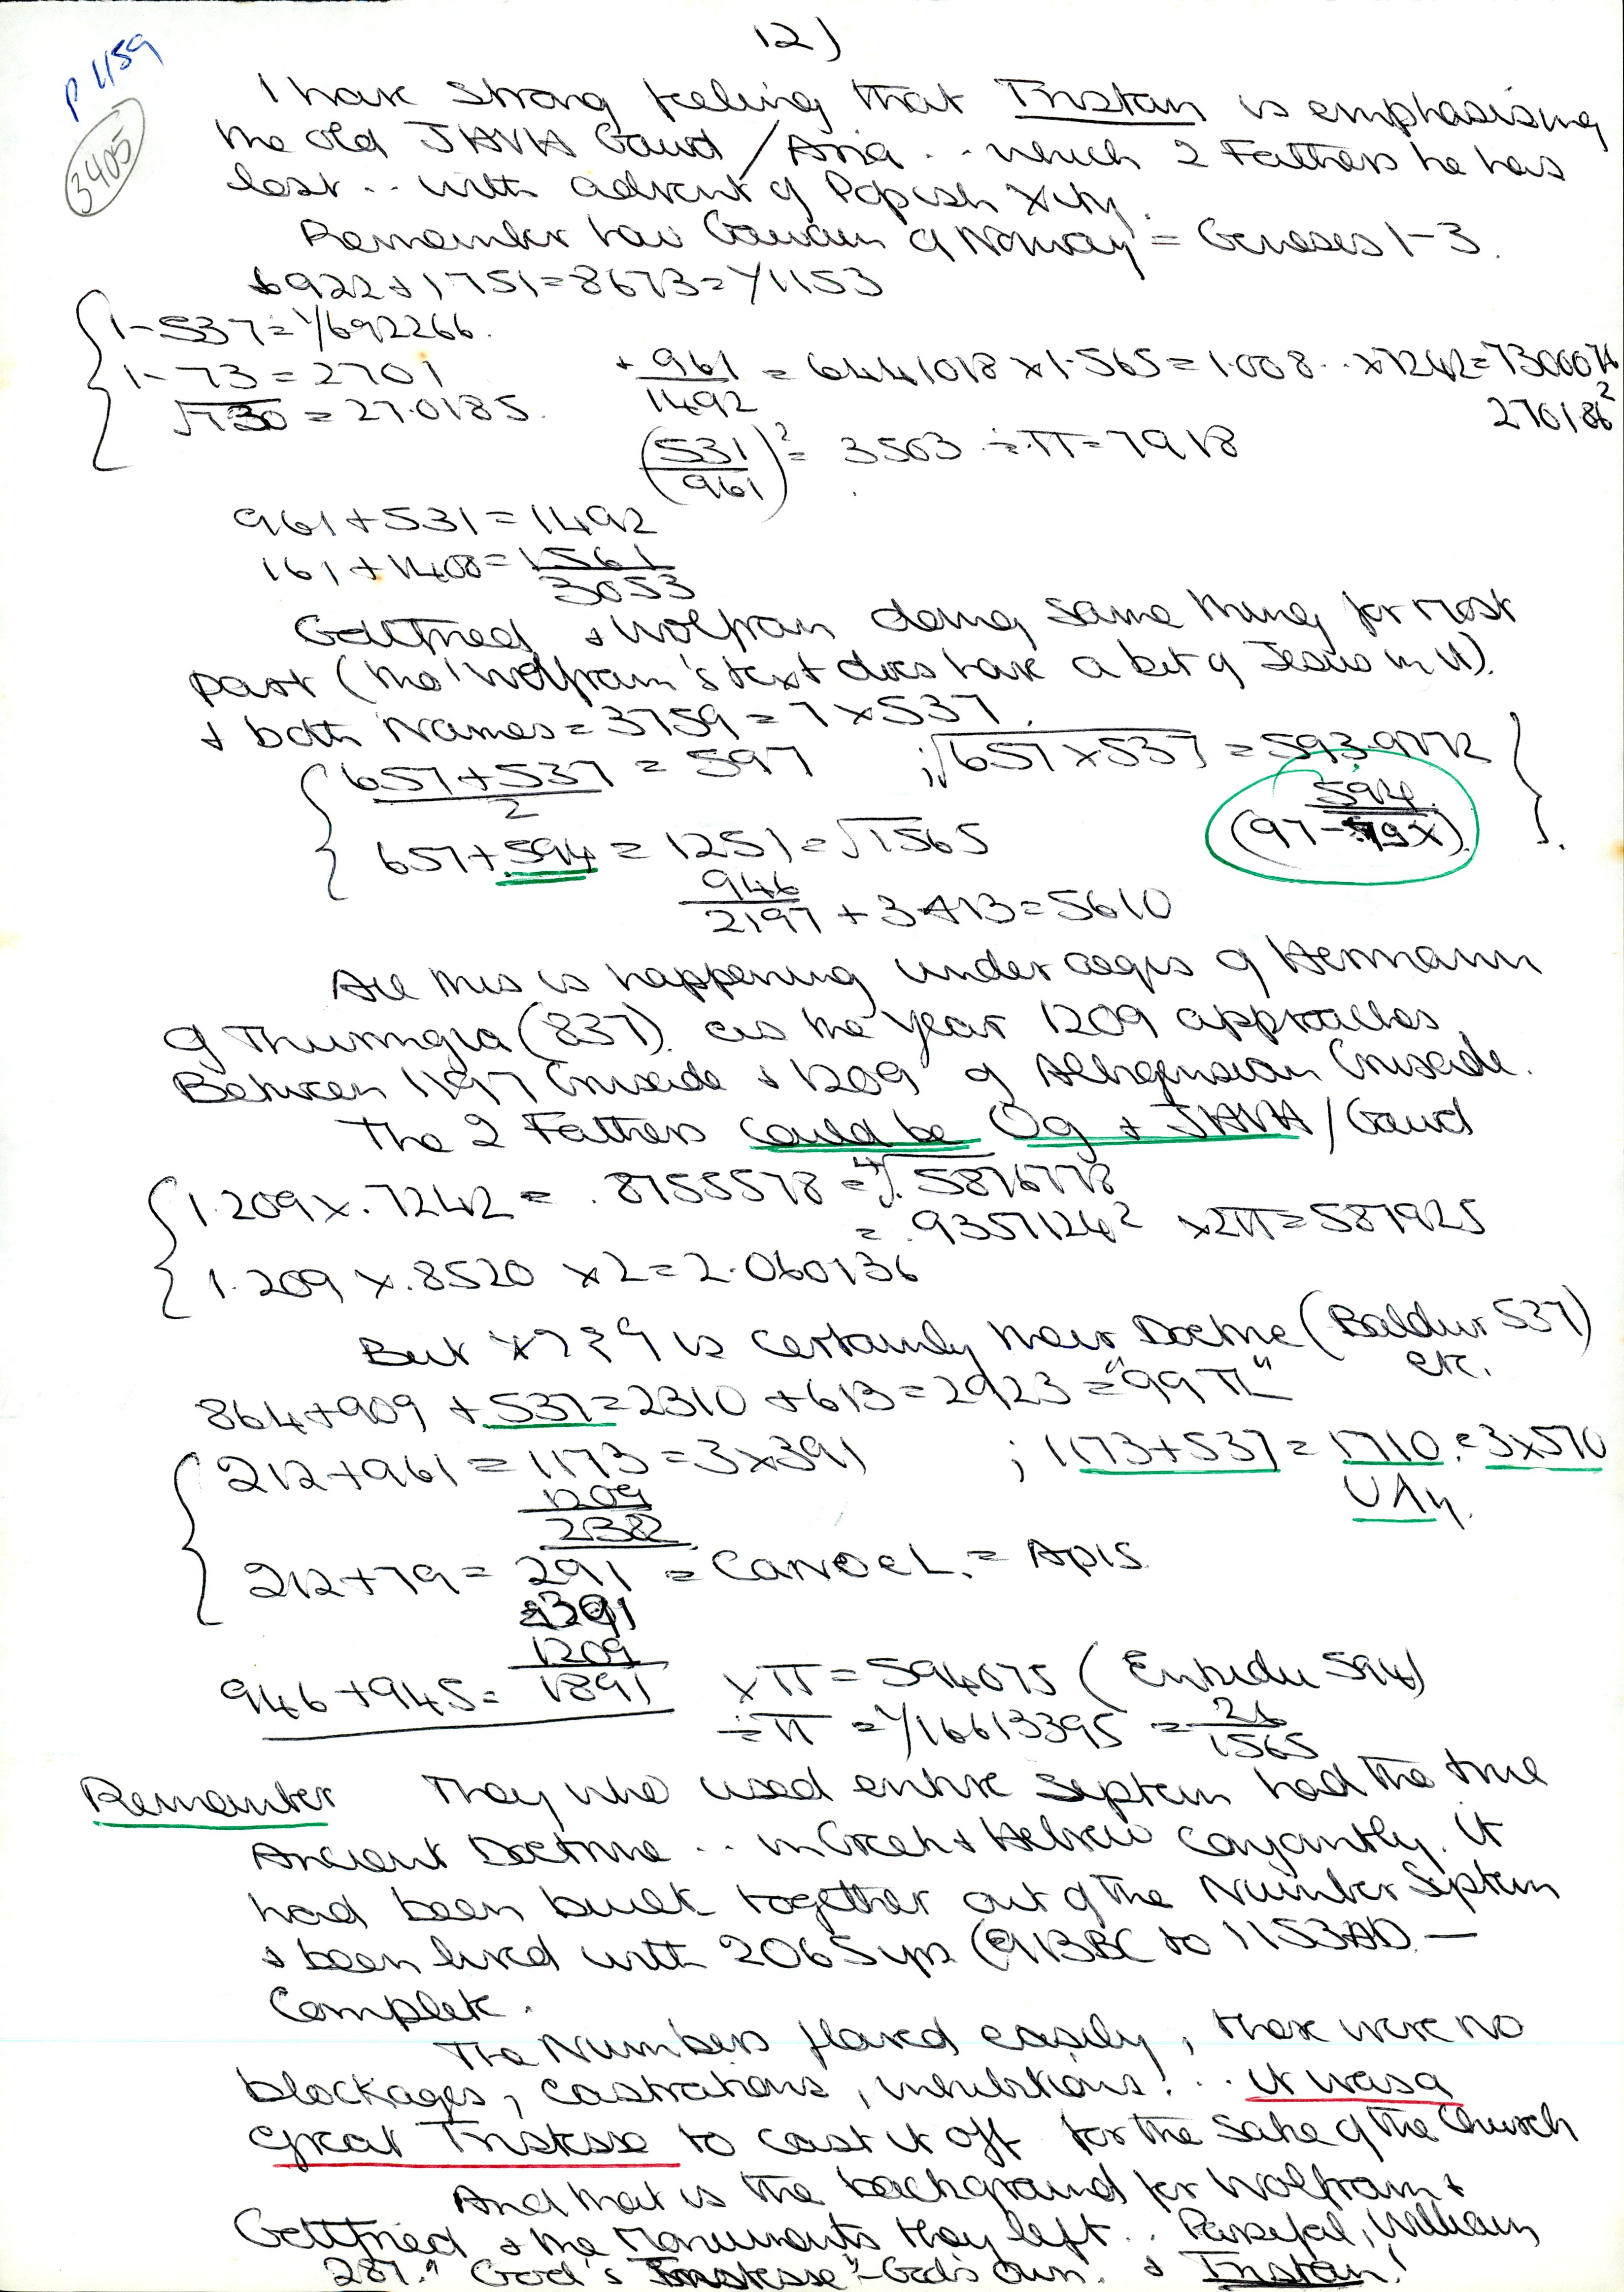 12)
P 1159
3405
I have strong feeling that Tristan is emphasising
the old JAVIA Gawd / Aria .. which 2 Fathers he has
lost .. with advent of Popish Xity.
Remember how Gawain of Norway = Geneses 1-3.
6922 + 1751 = 8673 = 1/1153
1-537 = 1/692266.
1-73 = 2701
√730 = 27.0185.
+ 961/1492 = 6441018 x 1.565 = 1.008.. x 7242 = 7300074
270186²
(531/961)² = 3503 ÷ π = 7918
961 + 531 = 1492
161 + 1400 = 1561
3053
Gottfried & Wolfram doing same thing for most
part (tho' Wolfram's text does have a bit of Jesus in it).
& both Names = 3759 = 7 x 537.
657+537/2 = 597 ; √657 x 537 = 593.9772
594
(97-79x)
657 + 594 = 1251 = √1565
946
2197 + 3413 = 5610
All this is happening under aegis of Hermann
of Thuringia (837) as the year 1209 approaches
Between 1197 Crusade & 1209 of Albigensian Crusade.
The 2 Fathers could be Og & JAVIA / Gawd
1.209 x .7242 = .8755578 = ⁴√.5876778
= .9357124² x 2π = 587925
1.209 x .8520 x 2 = 2.060136
But x??9 is certainly their Doctrine (Baldur 537)
etc.
864 + 909 + 537 = 2310 + 613 = 2923 = "99 π"
212 + 961 = 1173 = 3 x 391 ; 1173 + 537 = 1710 = 3 x 570
1209
2382
212 + 79 = 291 = CANDEL. = Apis.
391
1209
946 + 945 = 1891 x π = 594075 (Enkidu 594)
÷ π = 1/16613395 = 26/1565
Remember They who used entire System had the true
Ancient Doctrine .. in Greek & Hebrew conjointly. It
had been built together out of the Number System
& been lived with 2065 yrs (913BC to 1153AD —
Complete.
The Numbers flowed easily, there were no
blockages, castrations, inhibitions! .. it was a
great Tristesse to cast it off for the sake of the Church
And that is the background for Wolfram &
Gottfried & the Monuments they left .. Parsifal, William,
287." God's Tristesse" - God's own. & Tristan!